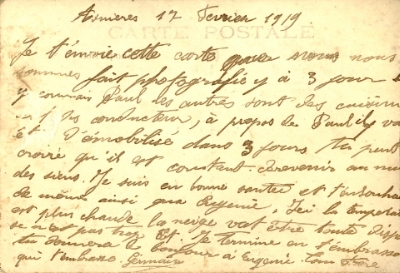 Asnieres 17 Fevrier 1919
CARTE POSTALE
Je t'envoie cette carte que nous nous
sommes fait photografié y a 3 jour
y connais Paul les autres sont des cuisiniers
et des conducteur, à propos de Paul il va
Et Démobilisé dans 3 jours tu peut
croire qu'il est constant revenir au
des siens. Je suis en bonne santée et t'en souhai
de même ainsi qua Eugénie, Ici la temperat
est plus chaude la neige vat être toute disp
se n'est pas trop tôt. Je termine en t'embrass
tu donnera le bonjour à Eugénie ton frère
qui t'embrasse. Germain